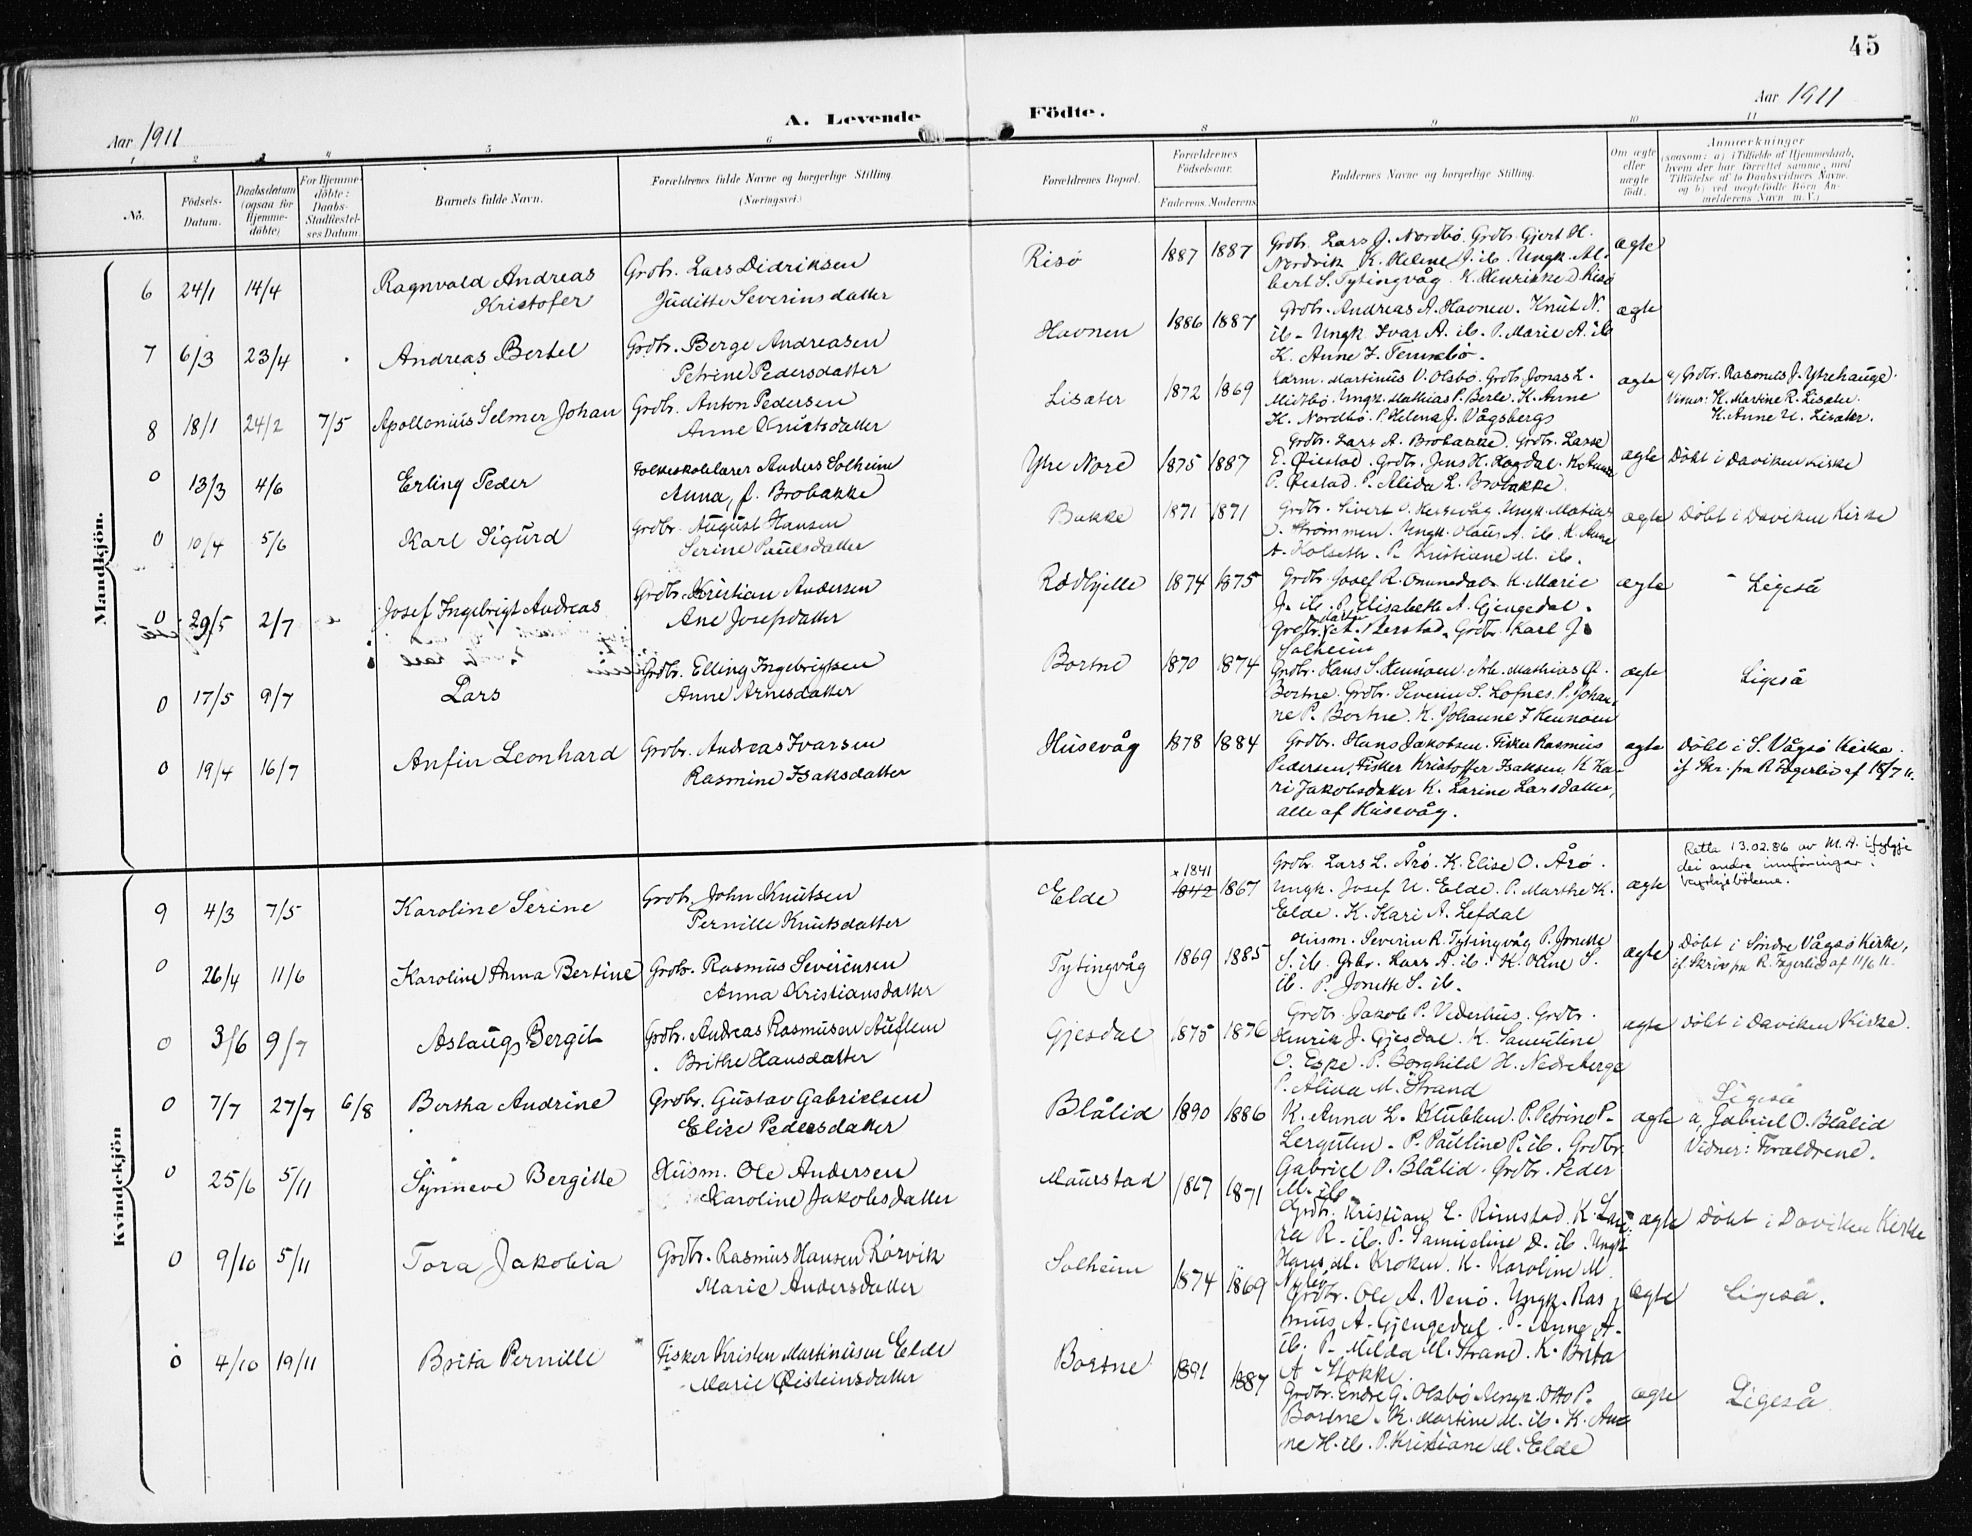 45
Aar 1911
A. Levende
Födte.
Aar 1911
1 2 3 4 5 6 8 9 10 11
Nô.
Födsels-
Datum.
Daabsdatum
(ogsaa for
Hjemme-
döbte)
For Hjemme-
döbte:
Daabs-
Stadfæstel-
ses Datum.
Barnets fulde Navn.
Forældrenes fulde Navne og borgerlige Stilling.
(Næringsvei.)
Forældrenes Bopæl.
Forældrenes
Födselsaar.
Faderens. Moderens.
Faddernes Navne og borgerlige Stilling.
Om ægte
eller
uægte
födt.
Anmærkninger
(saasom: a) i Tilfælde af Hjemmedaab,
hvem der har forrettet samme, med
Tilföielse af to Daabsvidners Navne,
og b) ved uægtefödte Börn An-
melderens Navn m. V.)
Mandkjön.
6 24/1 14/4 Ragnvald Andreas
Kristofer
Grdbr. Lars Didriksen
Juditte Severinsdatter
Risö 1887 1887
Grdbr. Lars J. Nordbö. Grdbr. Gjert H.
Nordvik K. Helene J. ib. Ungk. Al-
bert S. Tytingvåg. K. Henrikke D. Risö
ægte
7 6/3 23/4 Andreas Bertel
Grdbr. Berge Andreasen
Petrine Pedersdatter
Havnen 1886 1887
Grdbr. Andreas A. Havnen. Knut N.
ib. Ungk. Ivar A. ib. P. Marie A. ib
K. Anne
ægte
8 18/1 24/2 7/5 Apollonius Selmer Johan
Grdbr. Anton Pedersen
Anne Knutsdatter
Lisæter 1872 1869
Martinus V. Olsbö. Grdbr. Jonas L.
Midtbö. Ungk. Mathias P. Berle. K. Anne
H. Nordbö. P. Helena J. Vågsberg
ægte
a/ Grdbr. Rasmus J. Ytrehauge.
Vidner: K. Martine R. Lisæter.
K. Anne U. Lisæter.
0 13/3 4/6 Erling Peder
Folkeskolelærer Anders Solheim
Anna, f. Brobakke
Ytre Nore 1875 1887
Grdbr. Lars A. Brobakke. Grdbr. Lasse
E. Øiestad. Grdbr. Jens H.
P. Øiestad. P. Alida L. Brobakke.
ægte
Döbt i Daviken Kirke
0 10/4 5/6 Karl Sigurd
Grdbr. August Hansen
Serine Paulsdatter
Bakke 1871 1871
Grdbr. Sivert Husevåg. Ungk. Matias
Strömmen. Ungk. Olaus A. ib. K. Anne
A. Kolseth. P. Kristiane M. ib.
ægte
Döbt i Daviken Kirke
0 29/5 2/7 Josef Ingebrigt Andreas
Grdbr. Kristian Andersen
Ane Josefsdatter
Rödhjelle 1874 1875
Grdbr. Josef R. Ommedal. K. Marie
J. ib. P. Elisabeth A. Gjengedal.
Grdbr. A. Berstad. Grdbr. Karl J.
Solheim
ægte
Ligeså
0 17/5 9/7 Lars
Grdbr. Elling Ingebrigtsen
Anne Arnesdatter
Bortne 1870 1874
Grdbr. Hans S. Hennöen. Arb. Mathias
Bortne. Grdbr. Severin S. Lofnes. P. Johan-
ne P. Bortne. K. Johanne I Hennöen
ægte
Ligeså
0 19/4 16/7 Anfin Leonhard
Grdbr. Andreas Ivarsen
Rasmine Isaksdatter
Husevåg 1878 1884
Grdbr. Hans Jakobsen. Fisker Rasmus
Pedersen, Fisker Kristoffer Isaksen. K Ka-
ri Jakobsdatter K. Larine Larsdatter,
alle af Husevåg.
ægte
Döbt i S. Vågsö Kirke.
if. Skr. fra R. Fagerlid af 18/7 11.
Kvindekjön
9 4/3 7/5 Karoline Serine
Grdbr. John Knutsen
Pernille Knutsdatter
Elde x 1841 1842 1867
Grdbr. Lars L. Årö. K. Elise O. Årö.
Ungk. Josef U. Elde. P. Marthe K.
Elde. K. Kari A. Lefdal
ægte
Retta 13.02.86 av M. A. ifylgje
dei andre innföringar i
kyrkjebökene.
0 26/4 11/6 Karoline Anna Bertine
Grdbr. Rasmus Severinsen
Anna Kristiansdatter
Tytingvåg 1869 1885
Husm. Severin R. Tytingvåg P. Jonette
S. ib. Grbr. Lars A. ib. K. Oline S.
ib. P. Jonette S. ib.
ægte
Döbt i Söndre Vågsö Kirke,
if Skriv fra R. Fagerlid af 11/6 11.
0 3/6 9/7 Aslaug Bergit
Grdbr. Andreas Rasmusen Auflem
Brithe Hansdatter
Gjesdal 1875 1876
Grdbr. Jakob P. Vederhus. Grdbr.
Henrik J. Gjesdal. K. Samuline
O. Espe. P. Borghild H. Nedreberge
P. Alida M. Strand
ægte
Döbt i Daviken Kirke.
0 7/7 27/7 6/8 Bertha Andrine
Grdbr. Gustav Gabrielsen
Elise Pedersdatter
Blålid 1890 1886
K. Anna L. Klubben. P. Petrine P.
Lergulen. P. Pauline P. ib. Grdbr
Gabriel P. Blålid. Grdbr. Peder
M. ib.
ægte
Ligeså
a, Gabriel O. Blålid
Vidner: Forældrene.
0 25/6 5/11 Synneve Bergitte
Husm. Ole Andersen
Karoline Jakobsdatter
Maurstad 1867 1871
Grdbr. Kristian L. Rimstad. K. Lau-
ra R. ib. P. Samueline D. ib. Ungk
Hans M. Kroken. K. Karoline M.
Nybö
ægte
Döbt i Daviken Kirke
0 9/10 5/11 Tora Jakobia
Grdbr. Rasmus Hansen Rörvik
Marie Andersdatter
Solheim 1874 1869
Grdbr. Ole A. Venö. Ungk. Ras-
mus A. Gjengedal. P. Anne A.
ib. P. Milda M. Strand. K. Brita
A. Hokke.
ægte
Ligeså.
0 4/10 19/11 Brita Pernille
Fisker Kristen Martinusen Elde
Marie Øisteinsdatter
Bortne 1891 1887
Grdbr. Endre G. Olsbö Ungk. Otto P.
Bortne. K. Martine M. ib. K. An-
ne H. ib. P. Kristiane M. Elde
ægte
Ligeså